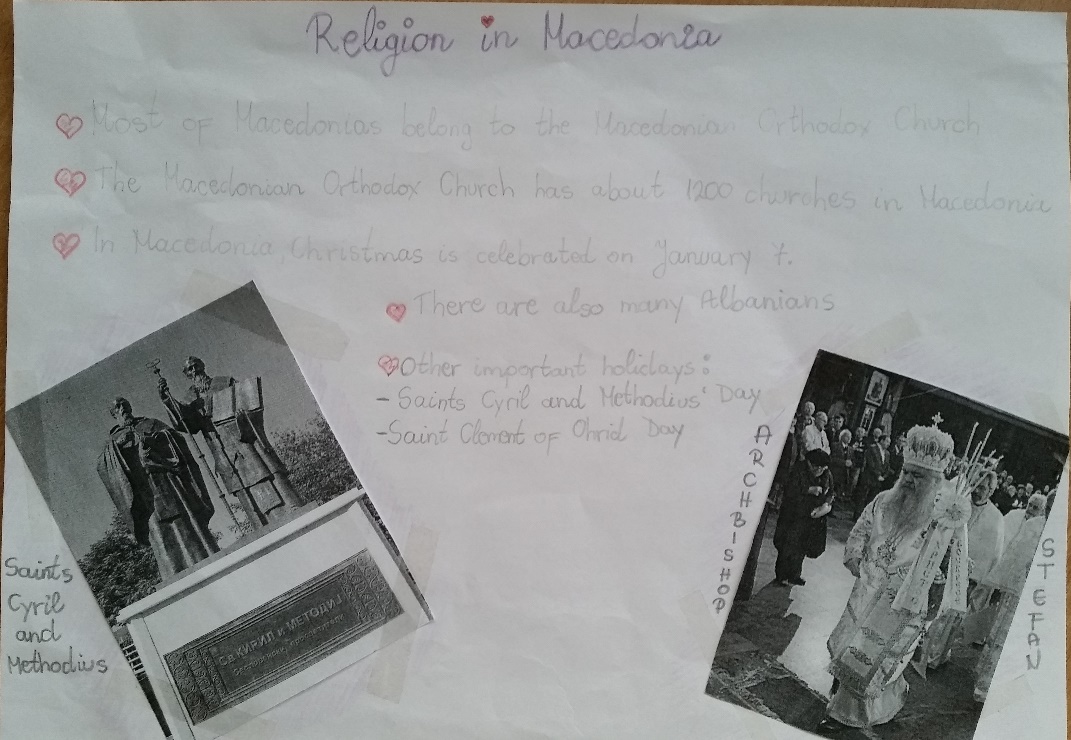 Religion in Macedonia
Most of Macedonias belong to the Macedonian Orthodox Church
The Macedonian Orthodox Church has about 1200 churches in Macedonia
In Macedonia, Christmas is celebrated on January 7.
There are also many Albanians
Other important holidays:
- Saints Cyril and Methodius' Day
- Saint Clement of Ohrid Day
Saints
Cyril
and
Methodius
СВ. КИРИЛ и МЕТОДИЈ
ARCHBISHOP
STEFAN